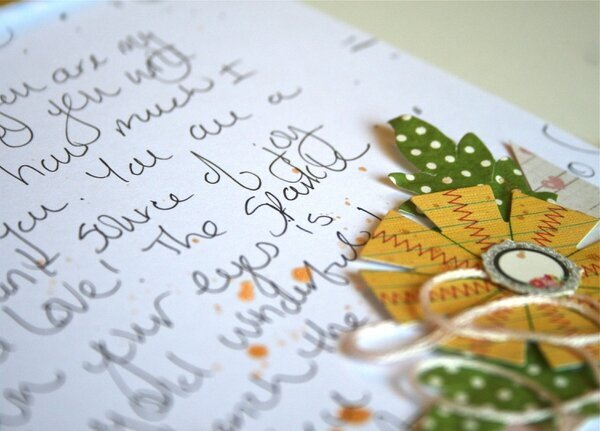 you are my
you will
how much I
you. You are a
source of joy
love! The sparkle
in your eyes is
wonderful!
the